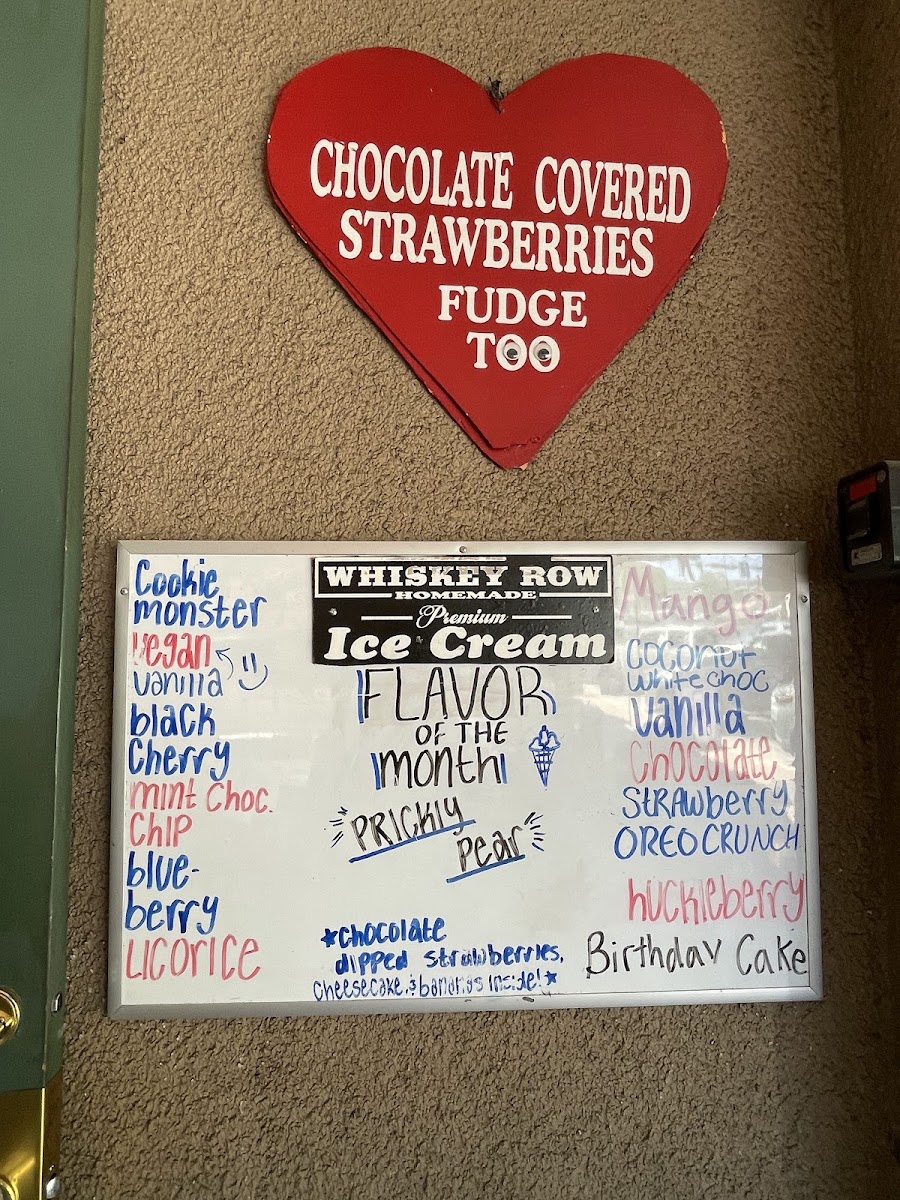 CHOCOLATE COVERED
STRAWBERRIES
FUDGE
TOO
WHISKEY ROW
HOMEMADE
Premium
Ice Cream
Cookie
monster
vegan
vanilla
black
Cherry
mint choc.
CHIP
blue-
berry
LICORICE
FLAVOR
OF THE
month
PRICKLY
pear
*chocolate
dipped strawberries,
cheesecake, & bananas inside!*
Mango
coconut
white choc
Vanilla
Chocolate
STRAWberry
OREO CRUNCH
huckleberry
Birthday Cake